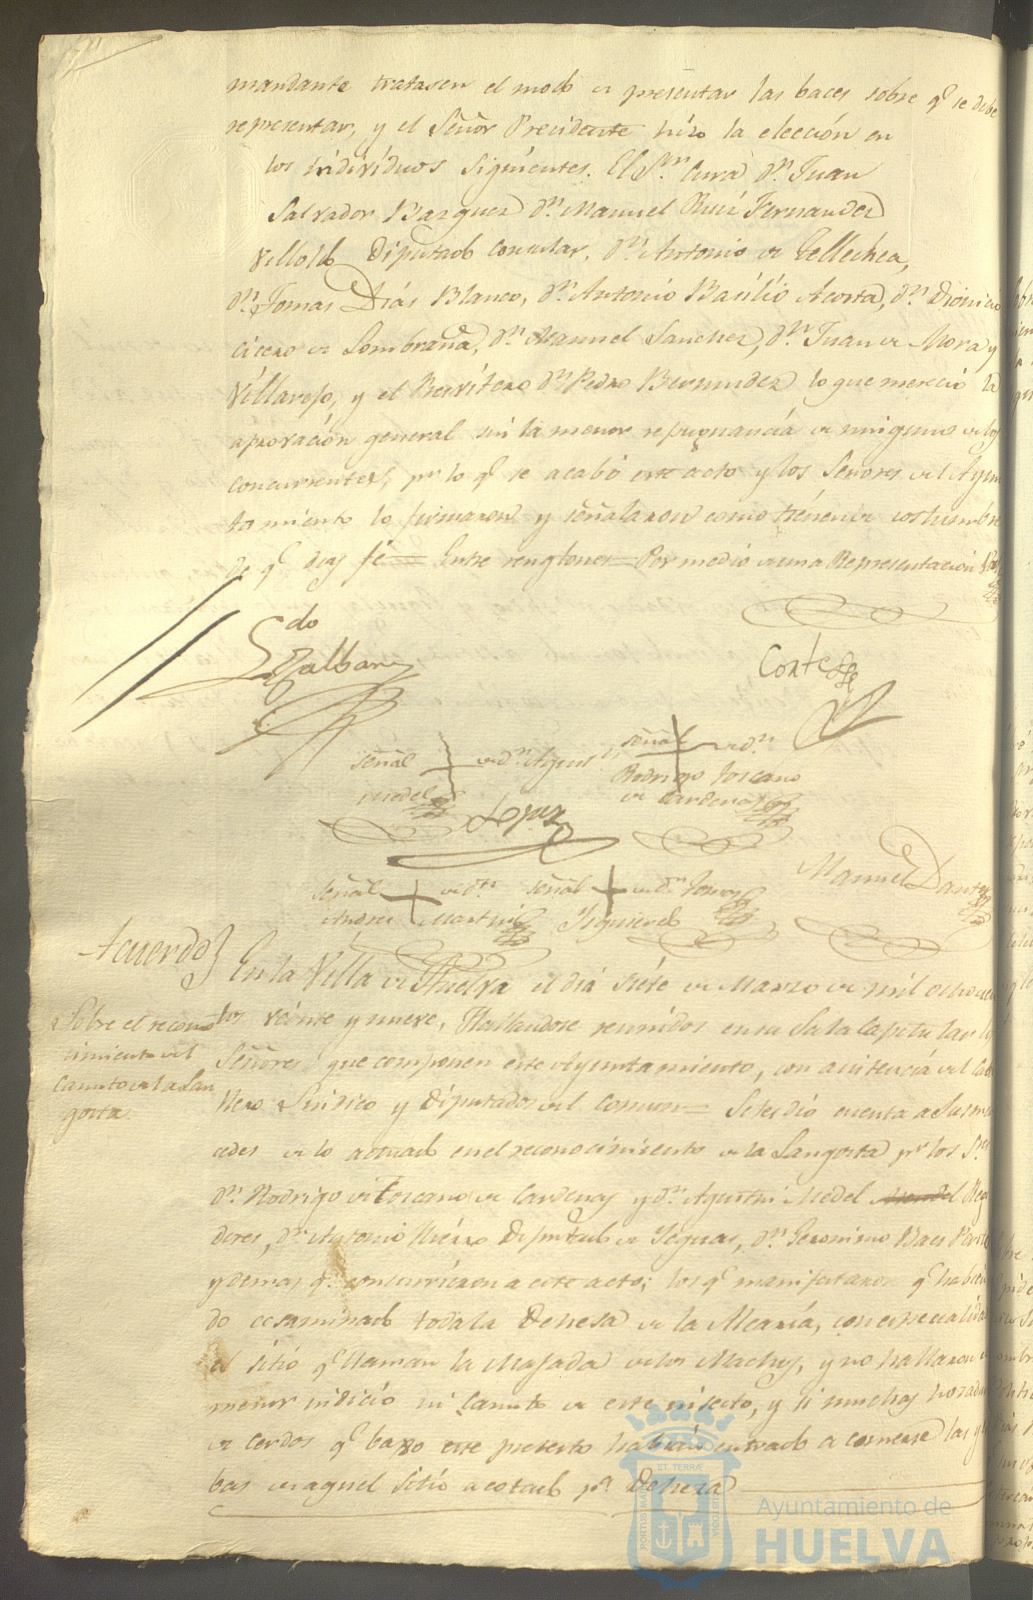 mandante tratasen el modo de presentar las baces sobre qe. se debe
representar, y el Señor Precidente hizo la elección en
los individuos siguientes. El Sr. Cura Dn. Juan
Salvador Bazquez Dn. Manuel Ruiz Fernandez
Villoldo Diputado Consular, Dn. Antonio de Tellechea,
Dn. Tomas Dias Blanco, Dn. Antonio Basilio Acosta, Dn. Dionicio
Cicero de Sombraña, Dn. Manuel Sanchez, Dn. Juan de Mora y
Villarejo, y el Presvitero Dn. Pedro Bermudez lo que mereció la
aprovación general sin la menor repugnancia de ninguno de los
concurrentes, pr. lo qe. se acabó este acto y los Señores del Ayun
tamiento lo firmaron y señalaron como tienen de costumbre
de qe. doy fé = Entre renglones = Por medio de una Representacion
Ldo
Balbare
Cortes
señal de Dn. Agustin
Medel
señal de Dn.
Rodrigo Toscano
de Cardenas
Lopez
señal de Dn.
Andres Martin
señal de Dn. Jose
Izquierdo
Manuel Dante
Acuerdo
Sobre el recono
cimiento del
Canuto de la Lan
gosta
En la Villa de Huelva el dia siete de Marzo de mil ochocien
tos veinte y nueve, Hallandose reunidos en su Sala Capitular los
Señores que componen este Ayuntamiento, con acistencia del Caba
llero Sindico y Diputados del comun = Se les dió cuenta a Sus mer
cedes de lo actuado en el reconocimiento de la Langosta pr. los Sres.
Dn. Rodrigo de Toscano de Cardenas y Dn. Agustin Medel Regi
dores, Dn. Antonio Hierro Diputado de Yeguas, Dn. Geronimo Baes
y demas qe. concurrieron a este acto; los qe. manifestaron qe. habien
do ecsaminado toda la Dehesa de la Alcaria, con especialidad
el sitio qe. llaman la Majada de los Machos, y no hallaron el
menor indicio ni Canuto de este insecto, y si muchas hozadas
de cerdos qe. baxo este pretesto habian entrado a comerse las yer
bas de aquel sitio acotado pa. Dehesa
PORTUS MARIS ET TERRÆ CUSTODIA
Ayuntamiento de
HUELVA